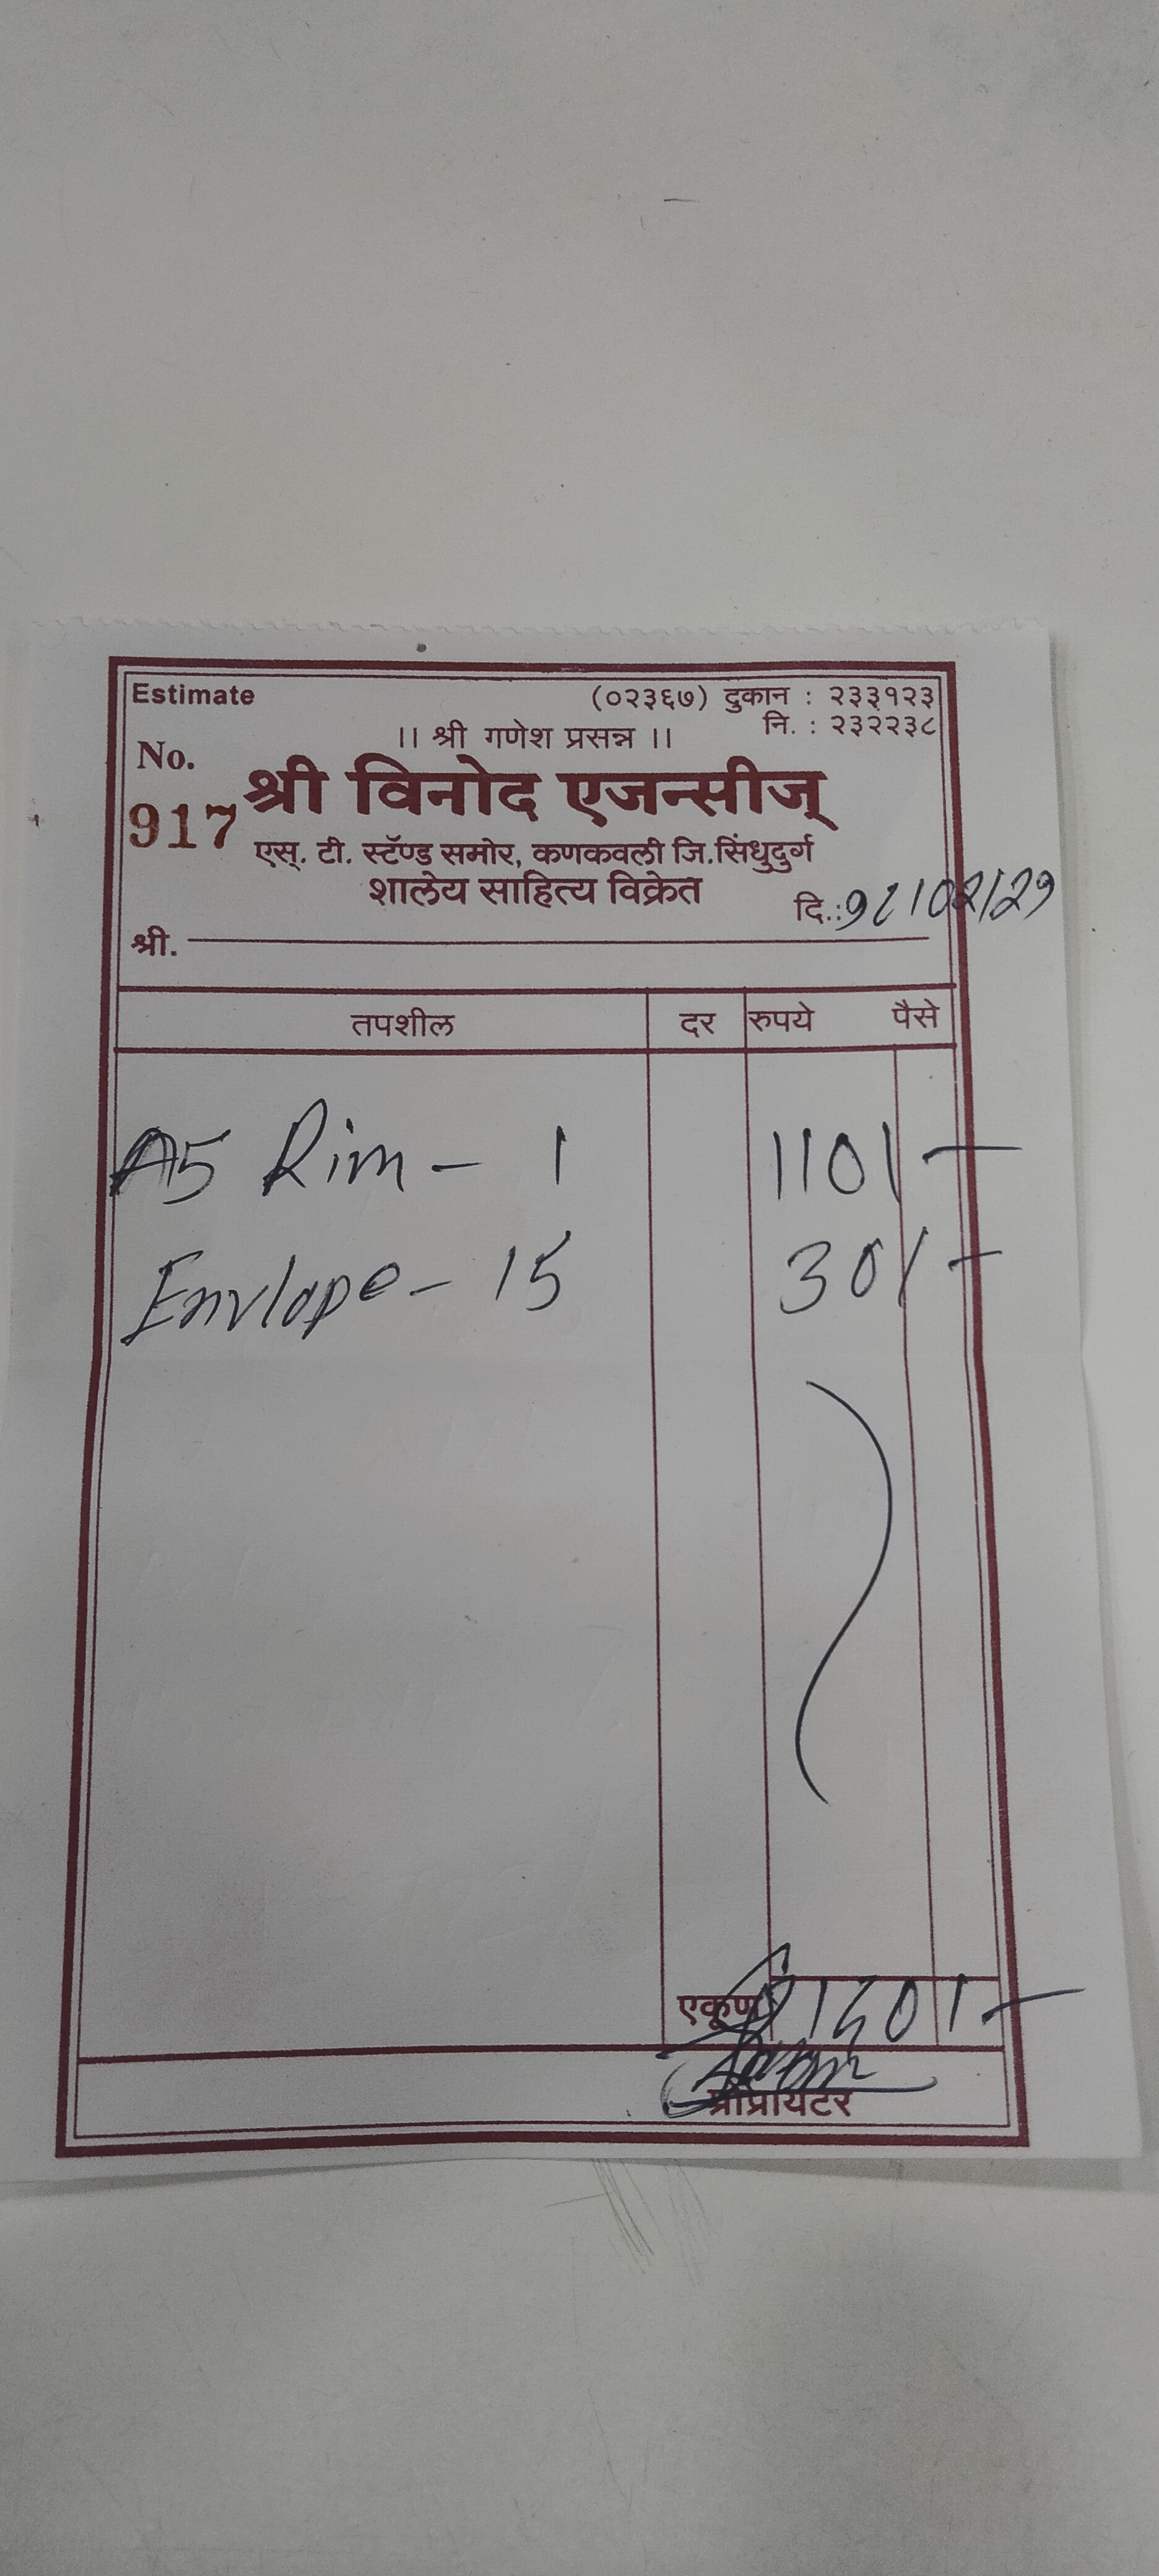 Estimate (०२३६७) दुकान : २३३१२३
नि. : २३२२३८
।। श्री गणेश प्रसन्न ।।
No.
श्री विनोद एजन्सीज्
917
एस्. टी. स्टॅण्ड समोर, कणकवली जि.सिंधुदुर्ग
शालेय साहित्य विक्रेते
दि.:
श्री.
तपशील दर रुपये पैसे
A5 Rim - 1 110/-
Envlope - 15 30/-
एकूण 140/-
प्रोप्रायटर